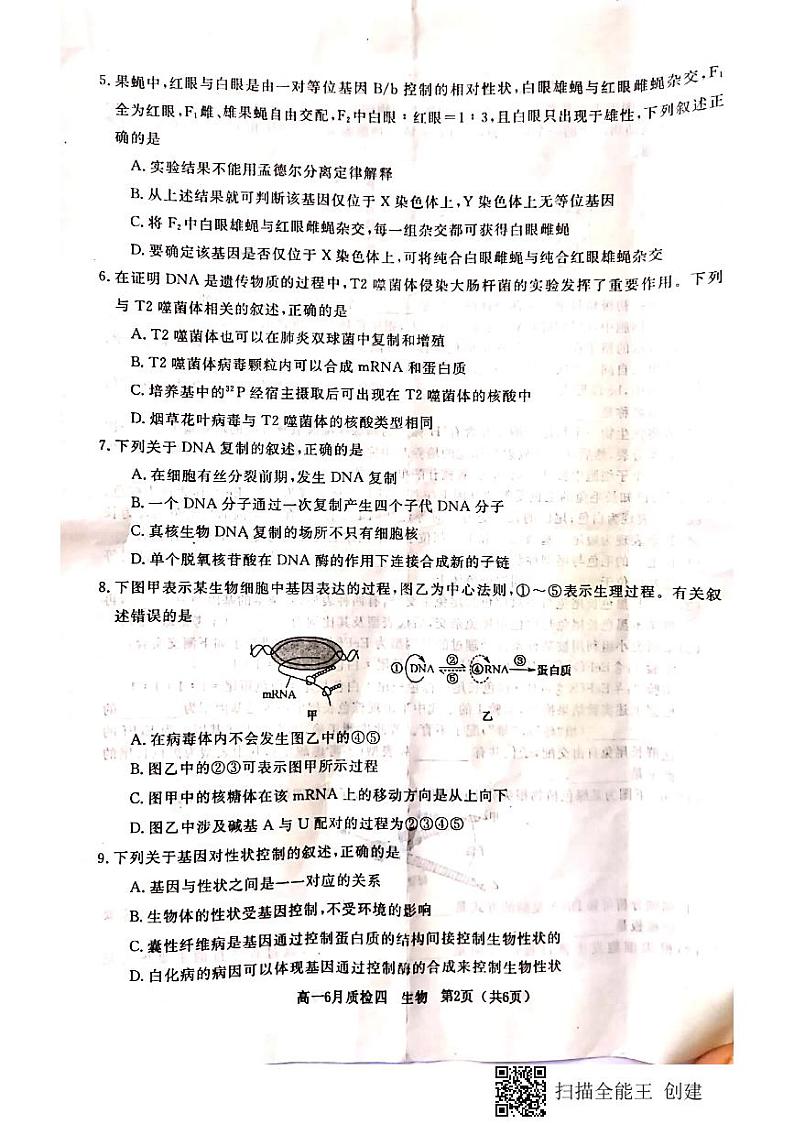 5. 果蝇中,红眼与白眼是由一对等位基因 B/b 控制的相对性状,白眼雄蝇与红眼雌蝇杂交,F₁
全为红眼,F₁雌、雄果蝇自由交配,F₂中白眼∶红眼=1∶3,且白眼只出现于雄性,下列叙述正
确的是
A. 实验结果不能用孟德尔分离定律解释
B. 从上述结果就可判断该基因仅位于 X 染色体上,Y 染色体上无等位基因
C. 将 F₂中白眼雄蝇与红眼雌蝇杂交,每一组杂交都可获得白眼雌蝇
D. 要确定该基因是否仅位于 X 染色体上,可将纯合白眼雌蝇与纯合红眼雄蝇杂交
6. 在证明 DNA 是遗传物质的过程中,T2 噬菌体侵染大肠杆菌的实验发挥了重要作用。下列
与 T2 噬菌体相关的叙述,正确的是
A. T2 噬菌体也可以在肺炎双球菌中复制和增殖
B. T2 噬菌体病毒颗粒内可以合成 mRNA 和蛋白质
C. 培养基中的³²P 经宿主摄取后可出现在 T2 噬菌体的核酸中
D. 烟草花叶病毒与 T2 噬菌体的核酸类型相同
7. 下列关于 DNA 复制的叙述,正确的是
A. 在细胞有丝分裂前期,发生 DNA 复制
B. 一个 DNA 分子通过一次复制产生四个子代 DNA 分子
C. 真核生物 DNA 复制的场所不只有细胞核
D. 单个脱氧核苷酸在 DNA 酶的作用下连接合成新的子链
8. 下图甲表示某生物细胞中基因表达的过程,图乙为中心法则,①～⑤表示生理过程。有关叙
述错误的是
mRNA
甲
① DNA ② ⑤ ④ RNA ③ 蛋白质
乙
A. 在病毒体内不会发生图乙中的④⑤
B. 图乙中的②③可表示图甲所示过程
C. 图甲中的核糖体在该 mRNA 上的移动方向是从上向下
D. 图乙中涉及碱基 A 与 U 配对的过程为②③④⑤
9. 下列关于基因对性状控制的叙述,正确的是
A. 基因与性状之间是一一对应的关系
B. 生物体的性状受基因控制,不受环境的影响
C. 囊性纤维病是基因通过控制蛋白质的结构间接控制生物性状的
D. 白化病的病因可以体现基因通过控制酶的合成来控制生物性状
高一6月质检四 生物 第2页(共6页)
扫描全能王 创建